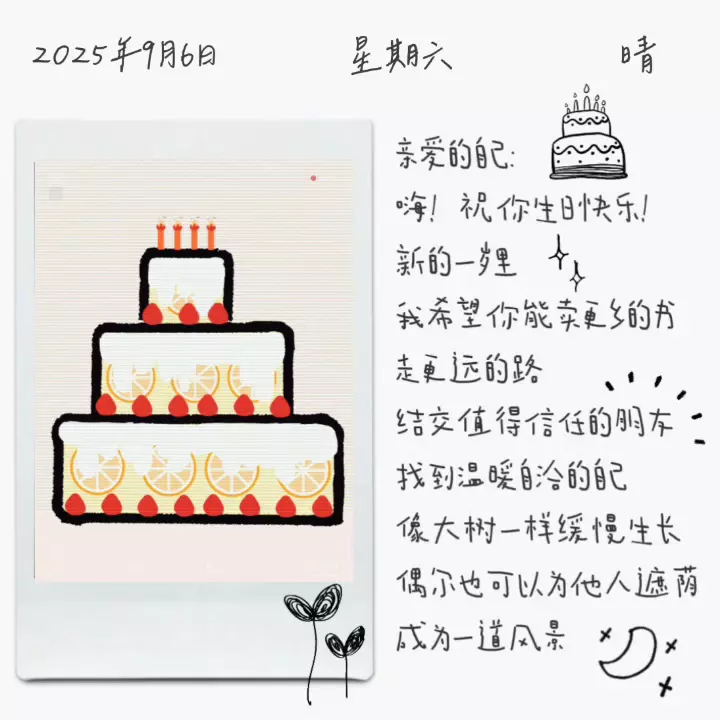 2025年9月6日 星期六 晴
亲爱的自己:
嗨! 祝你生日快乐!
新的一岁里
我希望你能卖更多的书
走更远的路
结交值得信任的朋友
找到温暖自洽的自己
像大树一样缓慢生长
偶尔也可以为他人遮荫
成为一道风景